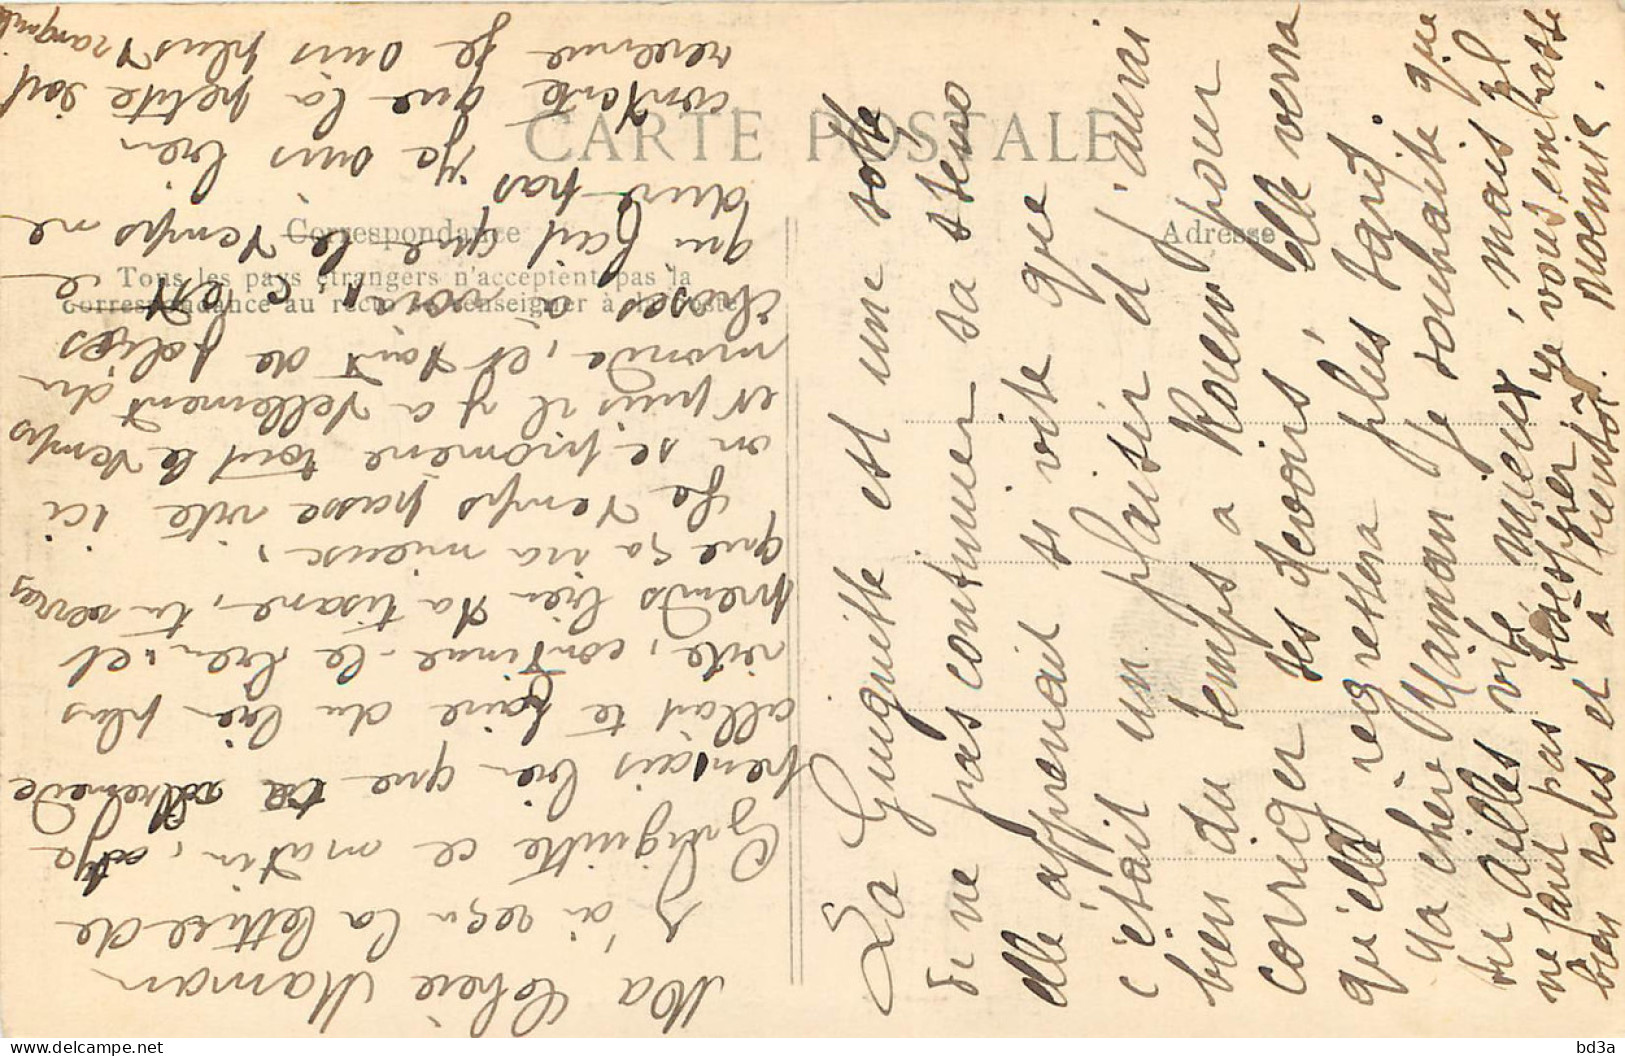 CARTE POSTALE
Correspondance
Adresse
Tous les pays étrangers n'acceptent pas la
correspondance au recto se renseigner à la Poste
Ma Chérie Maman
J'ai reçu la lettre de
Guiguitte ce matin, je
pensais bien que ta
allait te faire du bien plus
vite, continue-le bien, et
prends bien ta tisane, tu verras
que ça ira mieux.
Le temps passe vite ici
on se promène tout le temps
et puis il y a tellement du
monde, et tant de jolies
choses à voir c'est ce
qui fait que le temps ne
dure pas. Je suis bien
contente que la petite soit
revenue je suis plus tranquille
La Guiguitte est une sotte
de ne pas continuer sa sténo
elle apprenait si vite que
c'était un plaisir et j'aurai
bien du temps à Rouen pour
corriger ses devoirs elle verra
qu'elle regrettera plus tard.
Ma chère Maman je souhaite que
tu ailles vite mieux, mais il
ne faut pas désespérer je vous embrasse
bien tous et à bientôt. Noémie.
bd3a